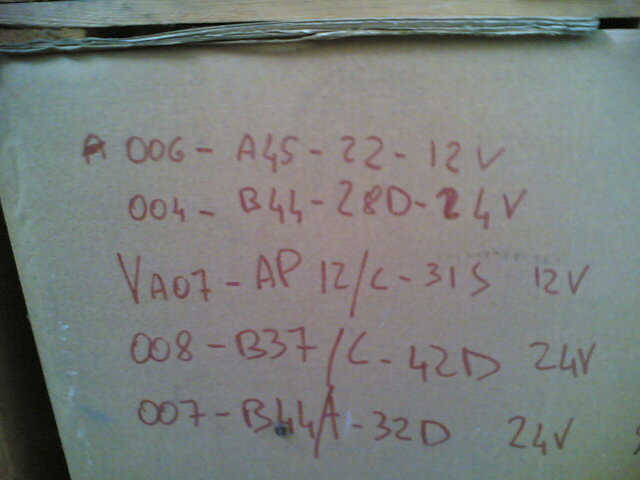 A 006 - A45 - 22 - 12V
004 - B44 - 28D - 24V
VA07 - AP 12/C - 31S 12V
008 - B37/C - 42D 24V
007 - B44/A - 32D 24V